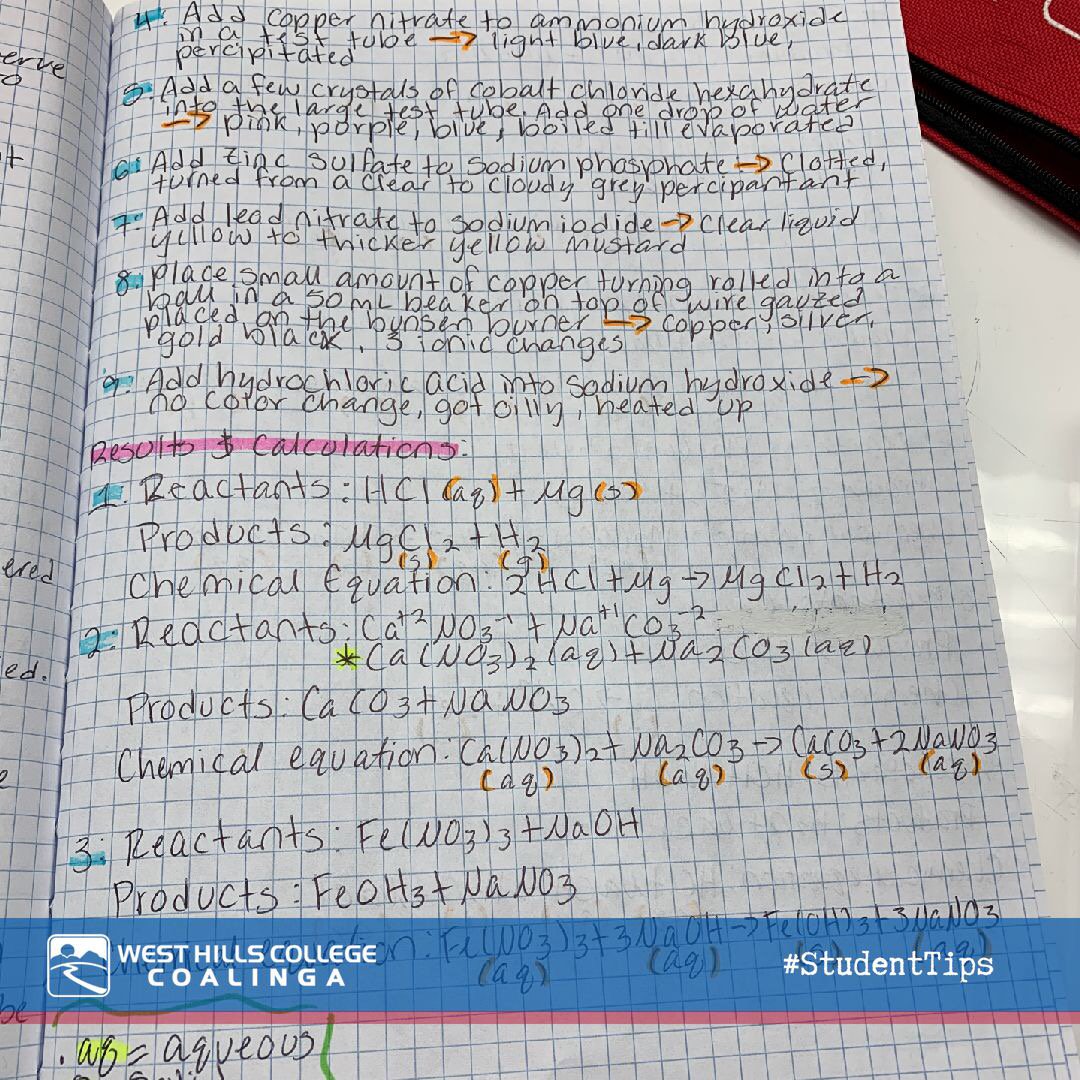 erve
4. Add copper nitrate to ammonium hydroxide
in a test tube → light blue, dark blue,
percipitated
5. Add a few crystals of cobalt chloride hexahydrate
into the large test tube. Add one drop of water
→ pink, porple, blue, boiled till evaporated
6. Add zinc sulfate to sodium phosphate → Clotted,
turned from a clear to cloudy grey percipantant
7. Add lead nitrate to sodium iodide → Clear liquid
yellow to thicker yellow mustard
8. Place small amount of copper turning rolled into a
ball in a 50 mL beaker on top of wire gauzed
placed on the bunsen burner → copper, silver,
gold black, 3 ionic changes
9. Add hydrochloric acid into sodium hydroxide →
no color change, got oilly, heated up
Results & Calculations:
1. Reactants: HCl (aq) + Mg (s)
Products: MgCl2 + H2
(s) (g)
ered
Chemical Equation: 2HCl + Mg → MgCl2 + H2
2. Reactants: Ca+2 NO3-1 + Na+1 CO3-2
*Ca(NO3)2 (aq) + Na2CO3 (aq)
ed.
Products: CaCO3 + NaNO3
Chemical equation: Ca(NO3)2 + Na2CO3 → CaCO3 + 2NaNO3
(aq) (aq) (s) (aq)
3. Reactants: Fe(NO3)3 + NaOH
Products: FeOH3 + NaNO3
on: Fe(NO3)3 + 3NaOH → Fe(OH)3 + 3NaNO3
(aq) (aq) (aq)
WEST HILLS COLLEGE
COALINGA
#StudentTips
be
. aq = aqueous